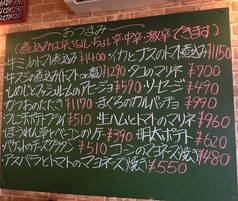 おつまみ
(煮込みは辛さなし・ちょい辛・中辛・激辛できます)
牛ミノのトマト煮込み ¥1400 イカとナスのトマト煮込み ¥1150
牛スジの煮込み(トマトor塩) ¥1290 タコのマリネ ¥900
しめじとマッシュルムのアヒージョ ¥590 ソーセージ ¥490
かつおのたたき ¥1190 まぐろのカルパッチョ ¥990
フレンチポテトフライ ¥510 生ハムとトマトのマリネ ¥960
ほうれん草とベーコンのソテー ¥390 明太ポテト ¥620
バケットのチーズクラタン ¥510 コーンのマヨネーズ焼き ¥480
アスパラとトマトのマヨネーズ焼き ¥550